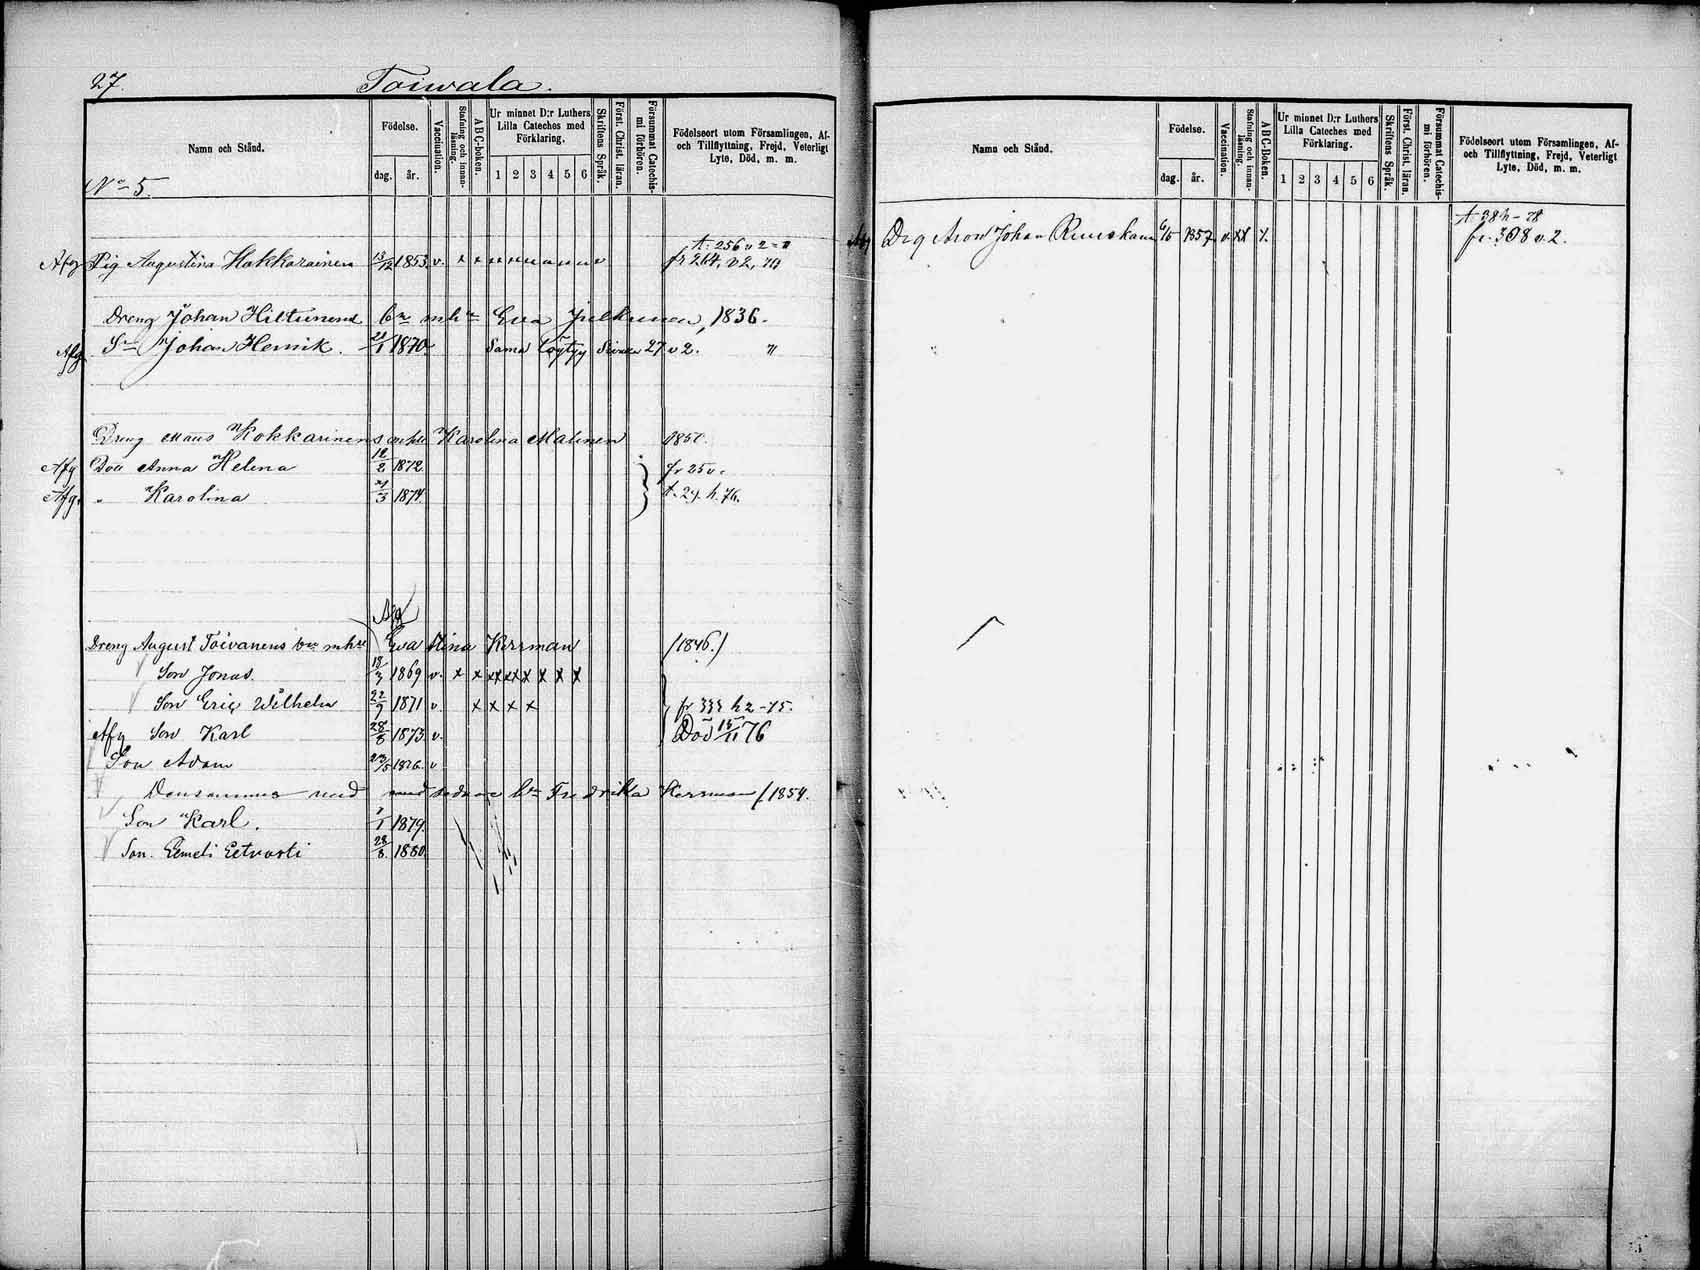 27.
Toiwala.
Namn och Stånd.
Födelse.
dag.
år.
Vaccination.
Stafning och innan-läsning.
ABC-boken.
Ur minnet D:r Luthers
Lilla Cateches med
Förklaring.
1 2 3 4 5 6
Skriftens Språk.
Först. Christ. läran.
Försummat Catechis-
mi förhören.
Födelseort utom Församlingen, Af-
och Tillflyttning, Frejd, Veterligt
Lyte, Död, m. m.
No 5.
t. 256 v 2
Afg Pig Augustina Hakkarainen 13/12 1853. v. x x fr 264, v 2,
Dreng Johan Hiltunens mhu Eva Julkunen, 1836.
Afg Sn Johan Henrik. 21/1 1870. Sama Löytyy Sivun 27 v 2. "
Dreng Maus Kokkarinens mhu Karolina Malinen 1850.
Afg Dotr Anna Helena 12/2 1872. fr 25 v.
Afg. " Karolina 21/3 1874. t. 29. h. 76.
Afg
Dreng August Toivanens mhu Eva Stina Kerrman (1846.)
Son Jonas. 18/3 1869 v. x x x x x x x x x x
Son Eric Wilhelm 22/9 1871 v. x x x x fr 333 h 2-75.
Afg Son Karl 28/8 1873 v. Död 15/11 76
Son Adam 23/5 1876. v
Densammes med Fredrika Kerrman (1854.
Son Karl. 1/1 1879.
Son. Eemeli Eetvarti 28/8. 1880.
Namn och Stånd.
Födelse.
dag.
år.
Vaccination.
Stafning och innan-läsning.
ABC-Boken.
Ur minnet D:r Luthers
Lilla Cateches med
Förklaring.
1 2 3 4 5 6
Skriftens Språk.
Först. Christ. läran.
Försummat Catechis-
mi förhören.
Födelseort utom Församlingen, Af-
och Tillflyttning, Frejd, Veterligt
Lyte, Död, m. m.
t 38 h - 78
Afg Drg Aron Johan 1857 v. xx x. fr. 308 v 2.